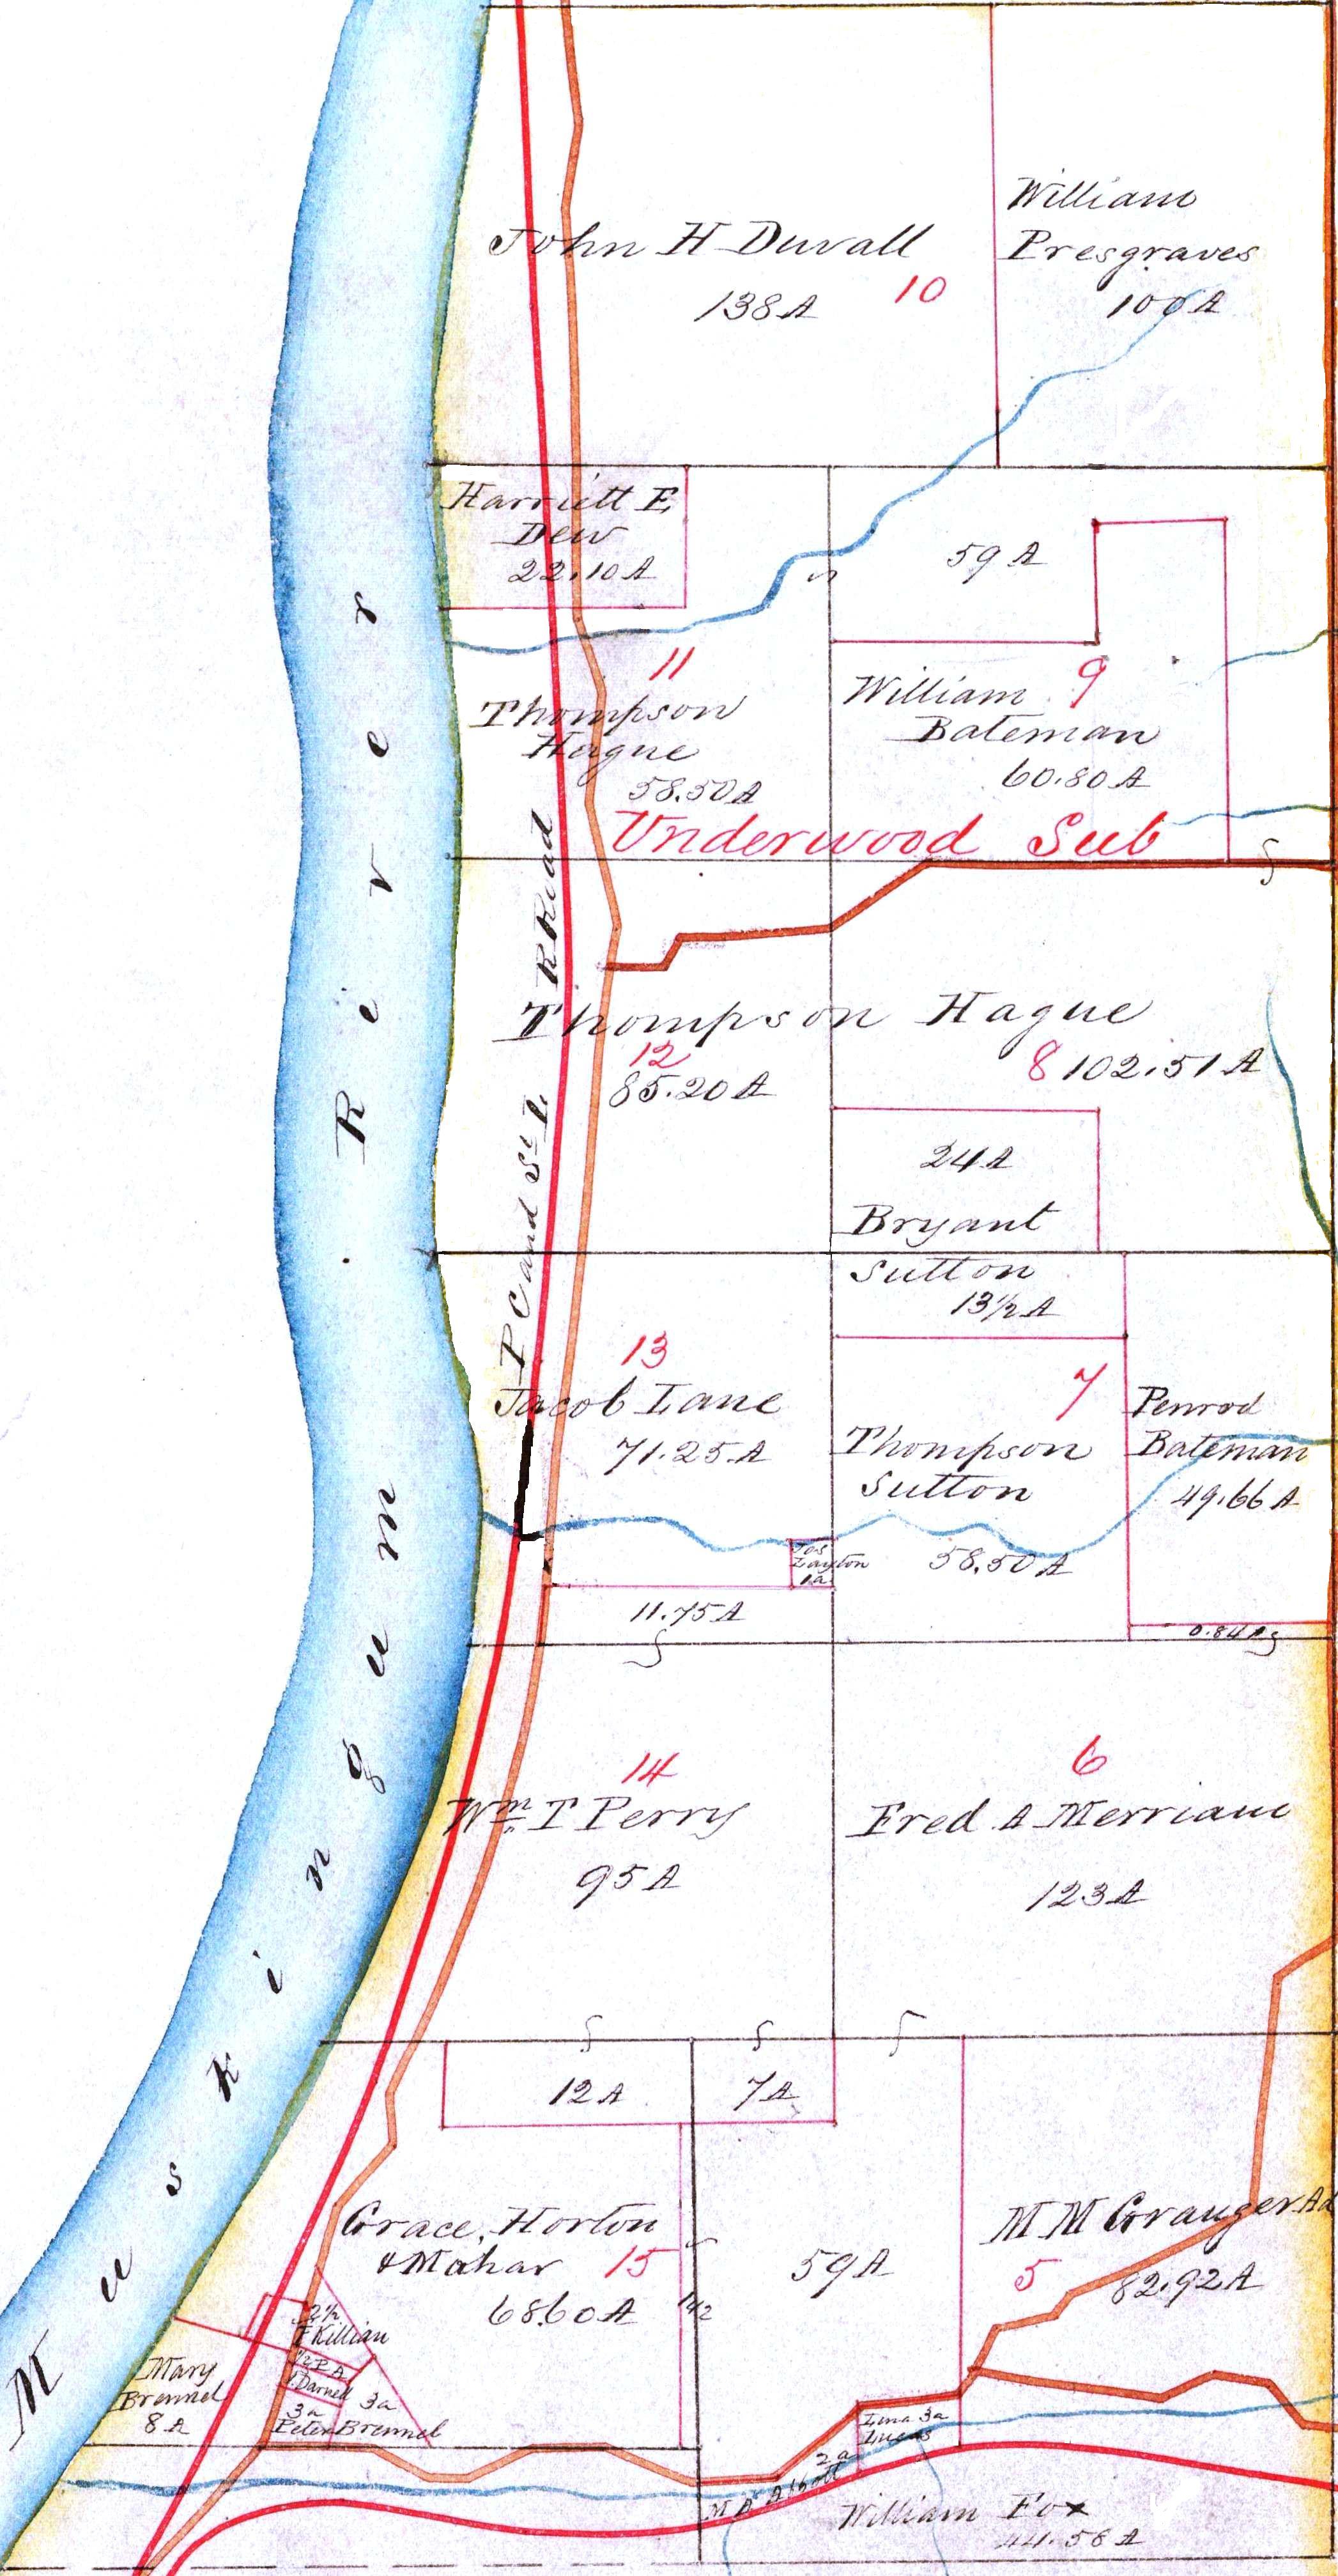 John H Duvall
138 A
10
William
Presgraves
100 A
Harriett E
Dew
22.10 A
59 A
11
Thompson
Hague
58.50 A
9
William
Bateman
60.80 A
Underwood Sub
Thompson Hague
12
85.20 A
8 102.51 A
24 A
Bryant
Sutton
13 1/2 A
13
Jacob Lane
71.25 A
7
Thompson
Sutton
58.50 A
Penrod
Bateman
49.66 A
Jos
Layton
1a
11.75 A
0.84 A
P C and St L R Road
Muskingum River
14
Wm T Perry
95 A
6
Fred A Merriam
123 A
12 A
7 A
Grace, Horton
& Mahar 15
68.60 A
142
59 A
M M Granger Ad
5
82.92 A
2 1/2
F Killian
1/2 P A
Darnell
3a
3a
Peter Bremmel
Mary
Bremmel
8 A
Lina 3a
Lucas
2a
M A Abbott
William Fox
44.58 A